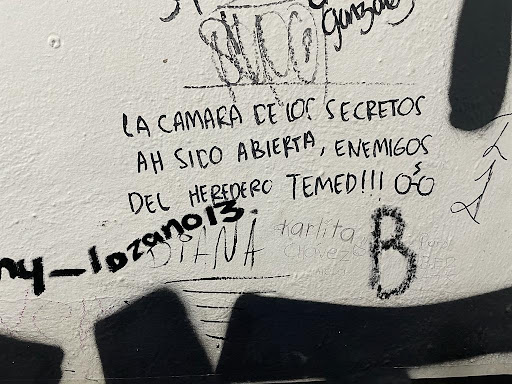 gonzalez
LA CAMARA DE LOS SECRETOS
AH SIDO ABIERTA, ENEMIGOS
DEL HEREDERO TEMED!!!
ny_lozano13.
DIANA
Karlita
Chavez
B